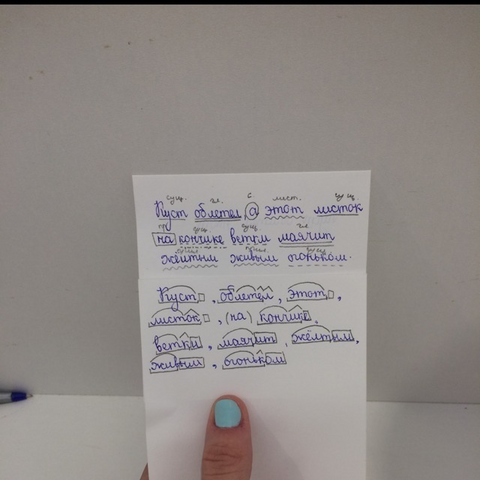 сущ. гл. с. мест. сущ.
Куст облетел, а этот листок
пр. сущ. сущ. гл.
на кончике ветки маячит
прил. прил. сущ.
жёлтым живым огоньком.
Куст , облетел , этот ,
листок , (на) кончике ,
ветки , маячит , жёлтым ,
живым , огоньком